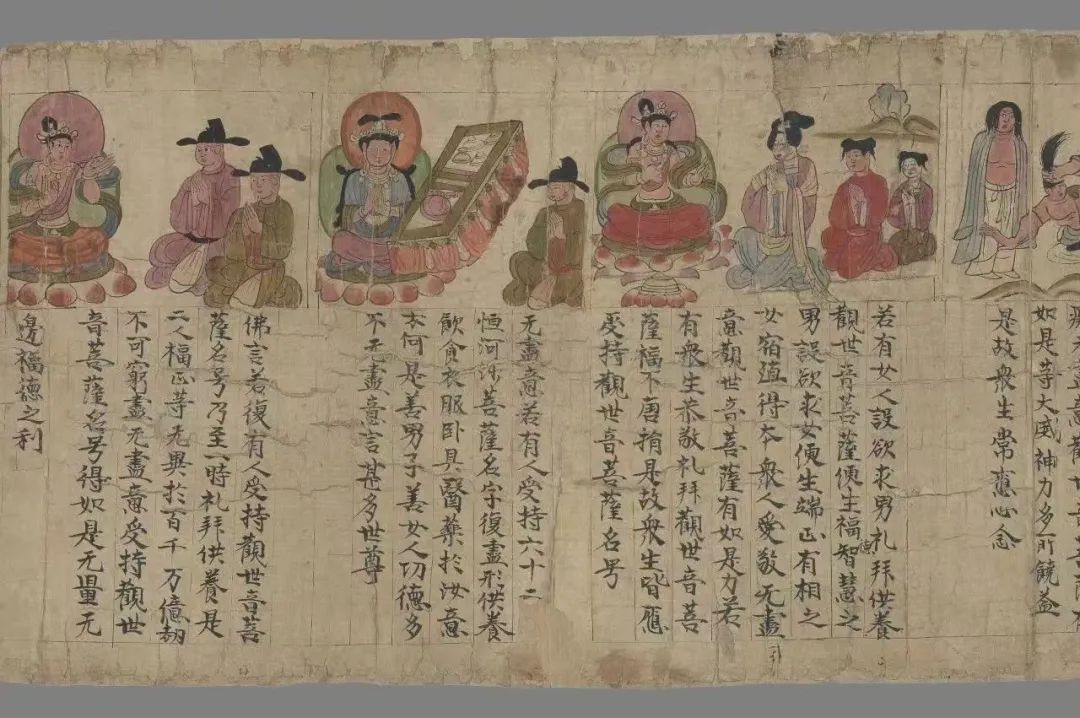 无盡意觀世音菩薩有
如是等大威神力多所饒益
是故衆生常應心念
若有女人設欲求男礼拜供養
觀世音菩薩便生福德智慧之
男設欲求女便生端正有相之
女宿殖得本衆人愛敬无盡
意觀世音菩薩有如是力若
有衆生恭敬礼拜觀世音菩
薩福不唐捐是故衆生皆應
受持觀世音菩薩名号
无盡意若有人受持六十二
恒河沙菩薩名字復盡形供養
飲食衣服卧具醫藥於汝意
云何是善男子善女人功德多
不无盡意言甚多世尊
佛言若復有人受持觀世音菩
薩名号乃至一時礼拜供養是
二人福正等无異於百千万億劫
不可窮盡无盡意受持觀世
音菩薩名号得如是无量无
邊福德之利